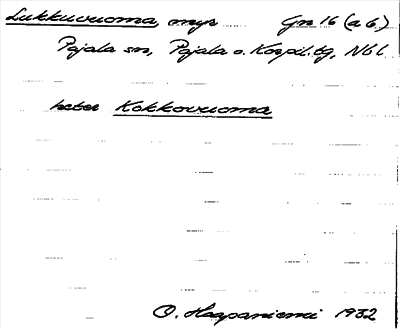 Lukkuvuoma, myr Gn 16 (a b.)
Pajala sn, Pajala o. Korpil. tg, Nbl
heter Kokkovuoma
O. Haapaniemi 1932